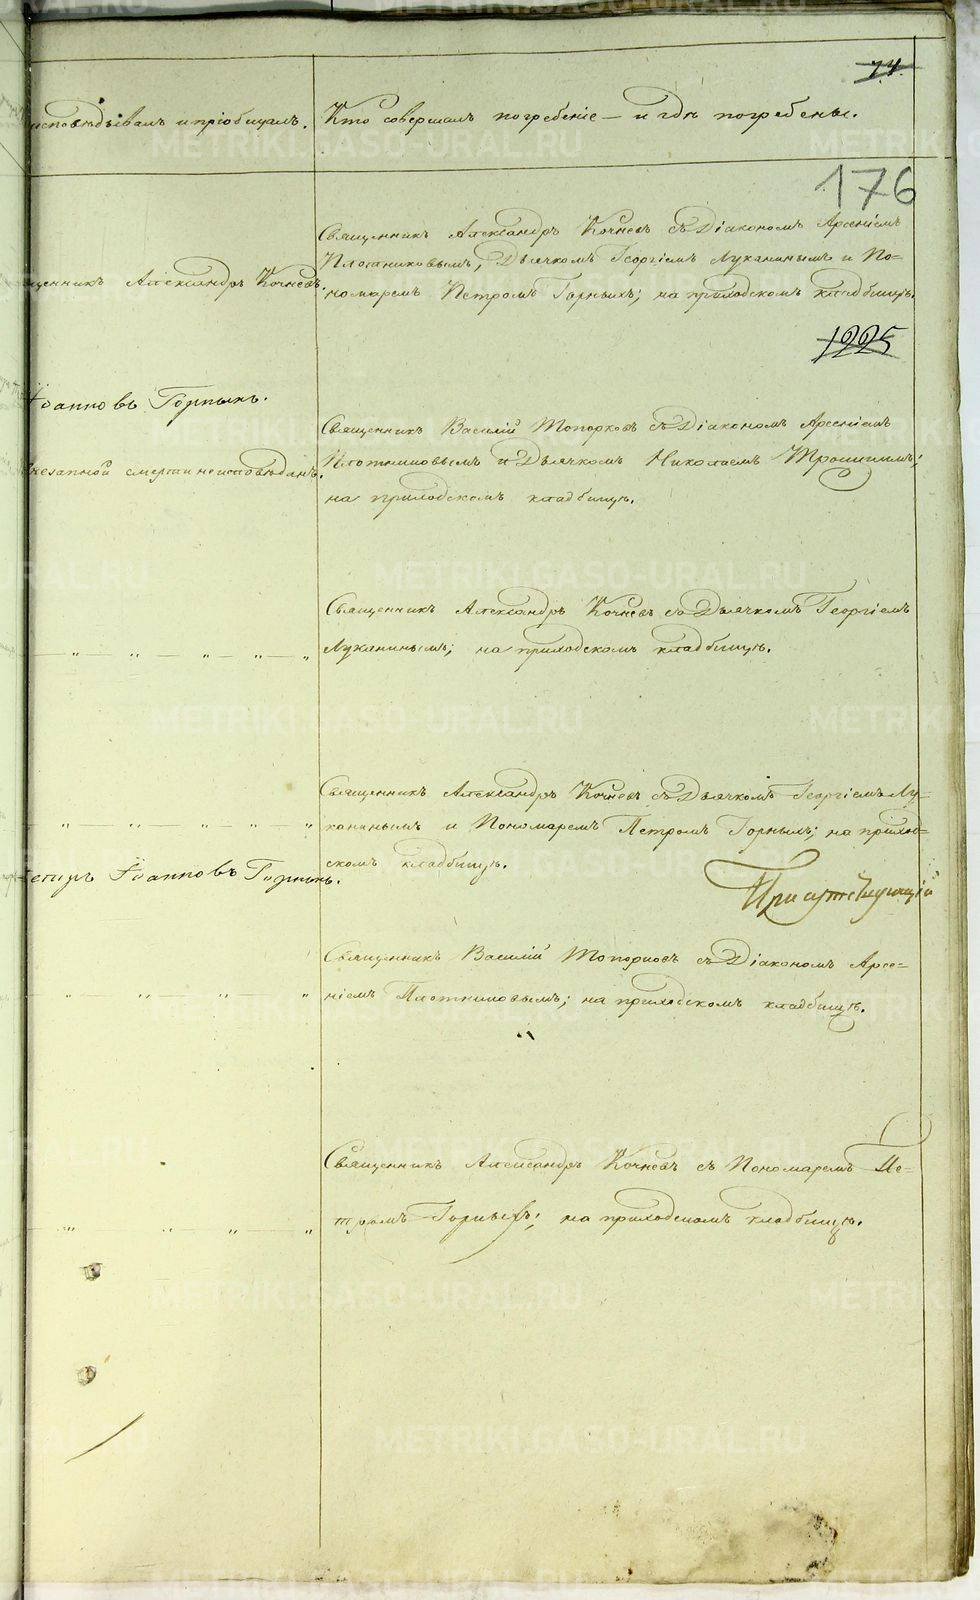 74.
исповѣдывалъ и пріобщалъ.
Кто совершалъ погребеніе — и гдѣ погребены.
176
Священникъ Александръ Кочневъ съ Діакономъ Арсеніемъ
Плотниковымъ, Дьячкомъ Георгіемъ Луканинымъ и По-
щенникъ Александръ Кочневъ.
номаремъ Петромъ Горныхъ; на приходскомъ кладбищѣ.
1225
Іоанновъ Горныхъ.
Священникъ Василій Топорковъ съ Діакономъ Арсеніемъ
незапной смерти не исповѣданъ.
Плотниковымъ и Дьячкомъ Николаемъ Трошинымъ;
на приходскомъ кладбищѣ.
Священникъ Александръ Кочневъ съ Дьячкомъ Георгіемъ
— „ — „ — „ — „ — „
Луканинымъ; на приходскомъ кладбищѣ.
Священникъ Александръ Кочневъ съ Дьячкомъ Георгіемъ Лу-
„ — „ — „ — „ — „
канинымъ и Пономаремъ Петромъ Горнымъ; на приход-
скомъ кладбищѣ.
Петръ Іоанновъ Горныхъ.
Присутствующій
Священникъ Василій Топорковъ съ Діакономъ Арсе-
„ — „ — „ — „
ніемъ Плотниковымъ; на приходскомъ кладбищѣ.
Священникъ Александръ Кочневъ съ Пономаремъ Пе-
„ „ „ „
тромъ Горныхъ; на приходскомъ кладбищѣ.
METRIKI.GASO-URAL.RU